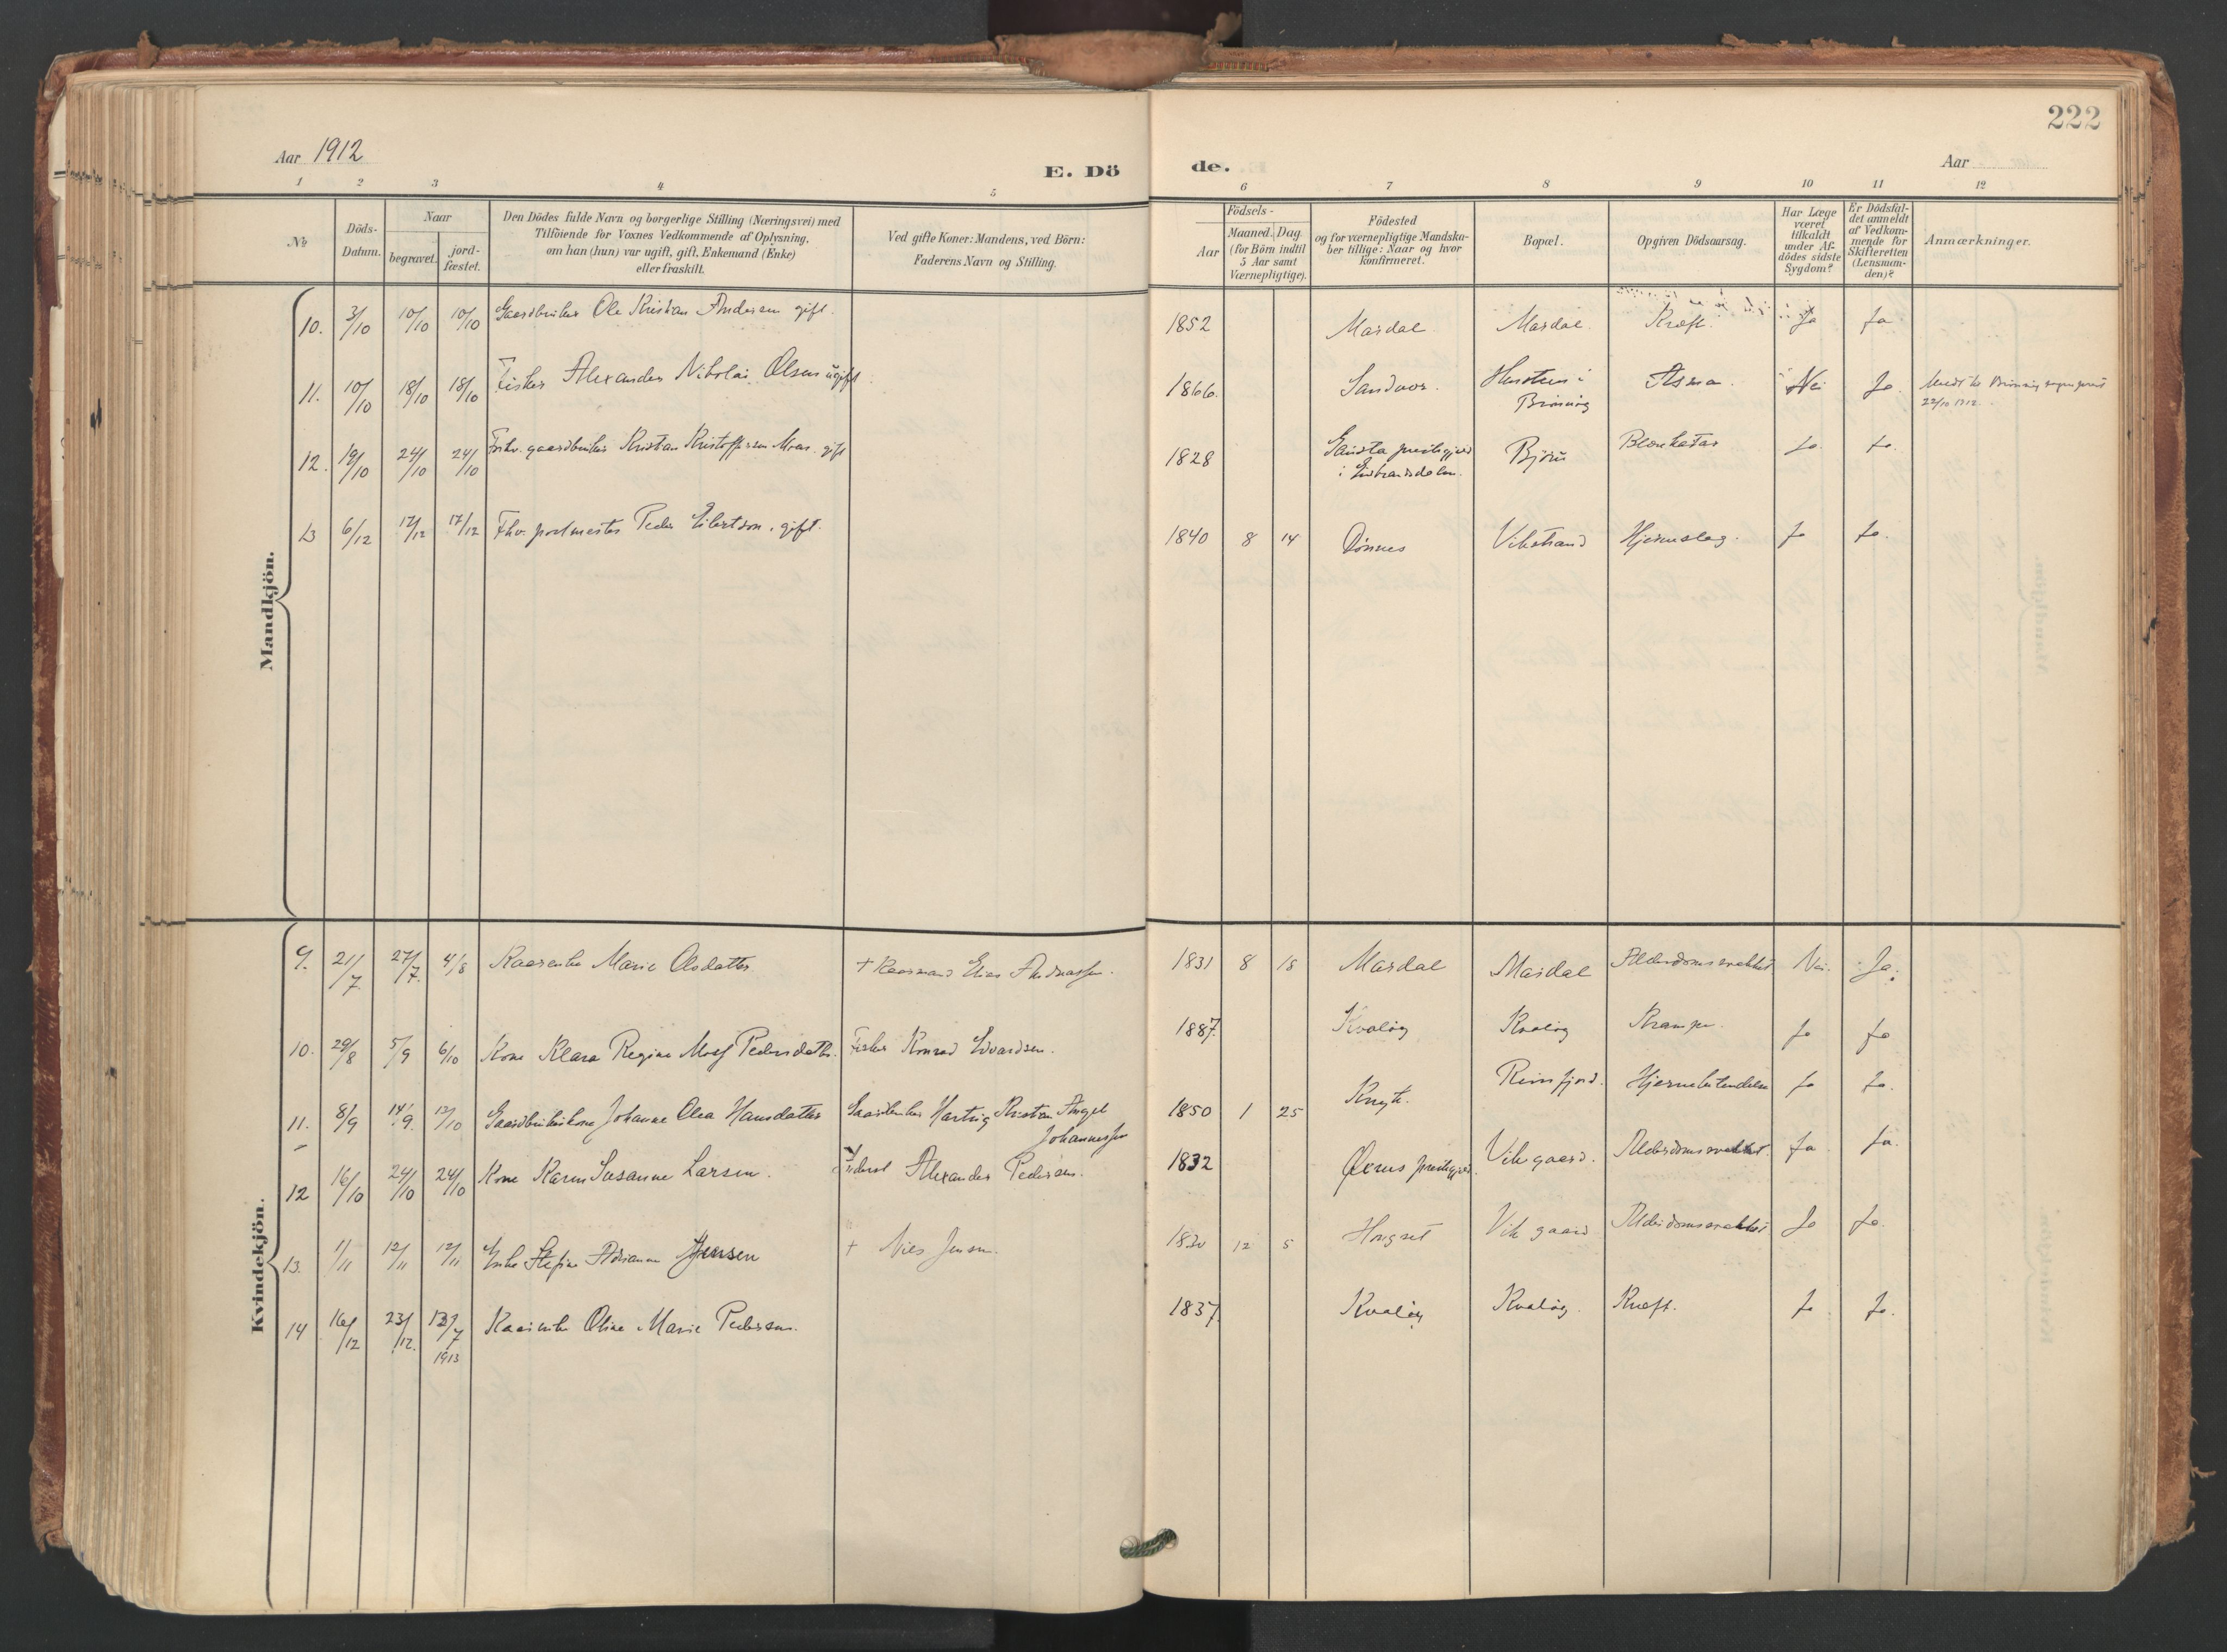 222
Aar 1912
E. Dö
de.
Aar
1 2 3 4 5 6 7 8 9 10 11 12
№
Döds-
Datum.
Naar
begravet.
jord-
fæstet.
Den Dödes fulde Navn og borgerlige Stilling (Næringsvei) med
Tilföiende for Voxnes Vedkommende af Oplysning,
om han (hun) var ugift, gift, Enkemand (Enke)
eller fraskilt.
Ved gifte Koner: Mandens, ved Börn:
Faderens Navn og Stilling.
Födsels-
Aar
Maaned. Dag
(for Börn indtil
5 Aar samt
Værnepligtige).
Födested
og for værnepligtige Mandska-
ber tillige: Naar og hvor
konfirmeret.
Bopæl.
Opgiven Dödsaarsag.
Har Læge
været
tilkaldt
under Af-
dödes sidste
Sygdom?
Er Dödsfal-
det anmeldt
af Vedkom-
mende for
Skifteretten
(Lensman-
den)?
Anmærkninger.
Mandkjön.
10. 3/10 10/10 10/10 Gaardbruker Ole Kristian Andersen gift. 1852 Mardal Mardal Kræft. Ja Ja
11. 10/10 18/10 18/10 Fisker Alexander Nikolai Olsen ugift 1866. Sandvær. i Asma. Nei Ja
Brönöy 22/10 1912.
12. 19/10 24/10 24/10 Forhv. gaardbruker Kristian Kristoffersen gift 1828 præstegjæld Björn Blærekatar Ja. Ja.
i Gudbrandsdalen.
13 6/12 17/12 17/12 Fhv. postmester Peder Eibertson. gift. 1840 8 14 Dönnes Vikstrand Hjerneslag. Ja Ja.
Kvindekjön.
9. 21/7 27/7 4/8 Kaarenke Marie Olsdatter + Kaarmand Elias Andreassen. 1831 8 18 Mardal Mardal Alderdomssvakhet Nei. Ja.
10. 29/8 5/9 6/10 Kone Klara Regine Pedersdatter. Fisker Konrad Edvardsen. 1887. Kvalöy Kvalöy Krampe. Ja Ja
11. 8/9 14/9 12/10 Gaardbrukerkone Johanne Olea Hansdatter Gaardbruker Hartvig Kristian Angel
Johannessen 1850 1 25 Reinfjord. Hjernebetændelse Ja Ja.
12 16/10 24/10 24/10 Kone Karen Susanne Larsen. Alexander Pedersen. 1832 præstegjæld. Vikgaard. Alderdomssvakhet. Ja Ja.
13. 1/11 12/11 12/11 Enke Adrianne Jensen + Nils Jensen. 1830 12 5 Vikgaard Alderdomssvakhet Ja Ja.
14 16/12 23/12. 13/7 Kaarenke Oline Marie Pedersen. 1837. Kvalöy Kvalöy. Kræft. Ja Ja.
1913